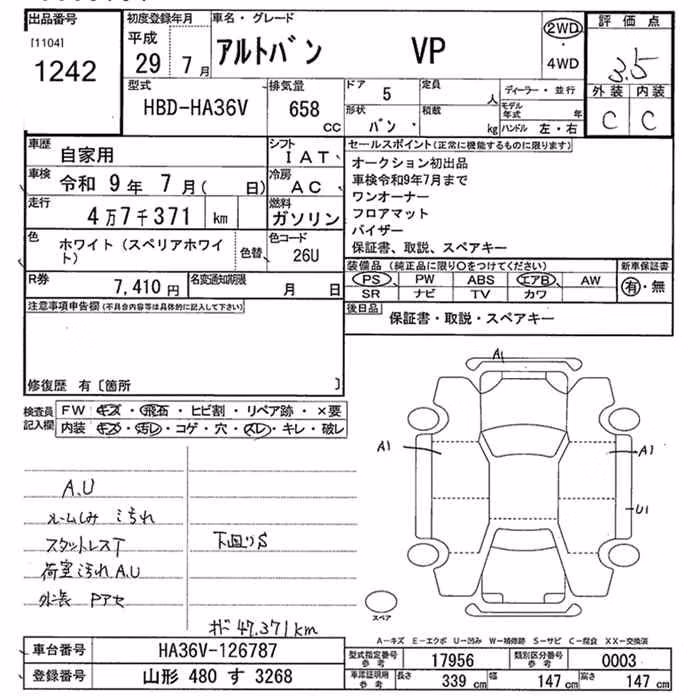 出品番号
[1104]
1242
初度登録年月
平成
29 7月
車名・グレード
アルトバン VP
2WD
・
4WD
評価点
3.5
外装 内装
C C
型式
HBD-HA36V
排気量
658
cc
ドア 5
形状 バン
定員
人
積載
kg
ディーラー・並行
モデル年式 年
ハンドル 左・右
車歴
自家用
シフト
IAT
車検 令和 9年 7月( 日)
冷房
AC
走行
4万7千371 km
燃料
ガソリン
色
ホワイト(スペリアホワイト)
色替
色コード
26U
R券
7,410 円
名変通知期限
月 日
セールスポイント(正常に機能するものに限ります)
オークション初出品
車検令和9年7月まで
ワンオーナー
フロアマット
バイザー
保証書、取説、スペアキー
装備品(純正品に限り○をつけてください)
PS PW ABS エアB AW
SR ナビ TV カワ
新車保証書
有・無
後日品
保証書・取説・スペアキー
注意事項申告欄(不具合内容等は具体的に記入して下さい)
修復歴 有〔箇所 〕
検査員
記入欄
FW キズ・飛石・ヒビ割・リペア跡・×要
内装 キズ・汚レ・コゲ・穴・スレ・キレ・破レ
A.U
ルームしみ 汚れ
スタットレスT
荷室汚れ A.U
外装 Pアセ
下回りS
47.371km
A1
A1
A1
U1
スペア
A―キズ E―エクボ U―凹み W―補修跡 S―サビ C―腐食 XX―交換済
車台番号
HA36V-126787
登録番号
山形 480 す 3268
型式指定番号
参考
17956
類別区分番号
参考
0003
車庫証明用
参考
長さ 339 cm
幅 147 cm
高さ 147 cm